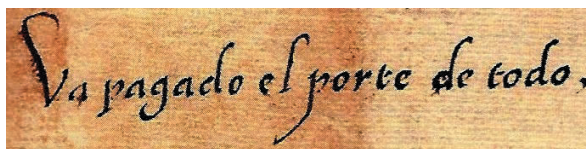 Va pagado el porte de todo.